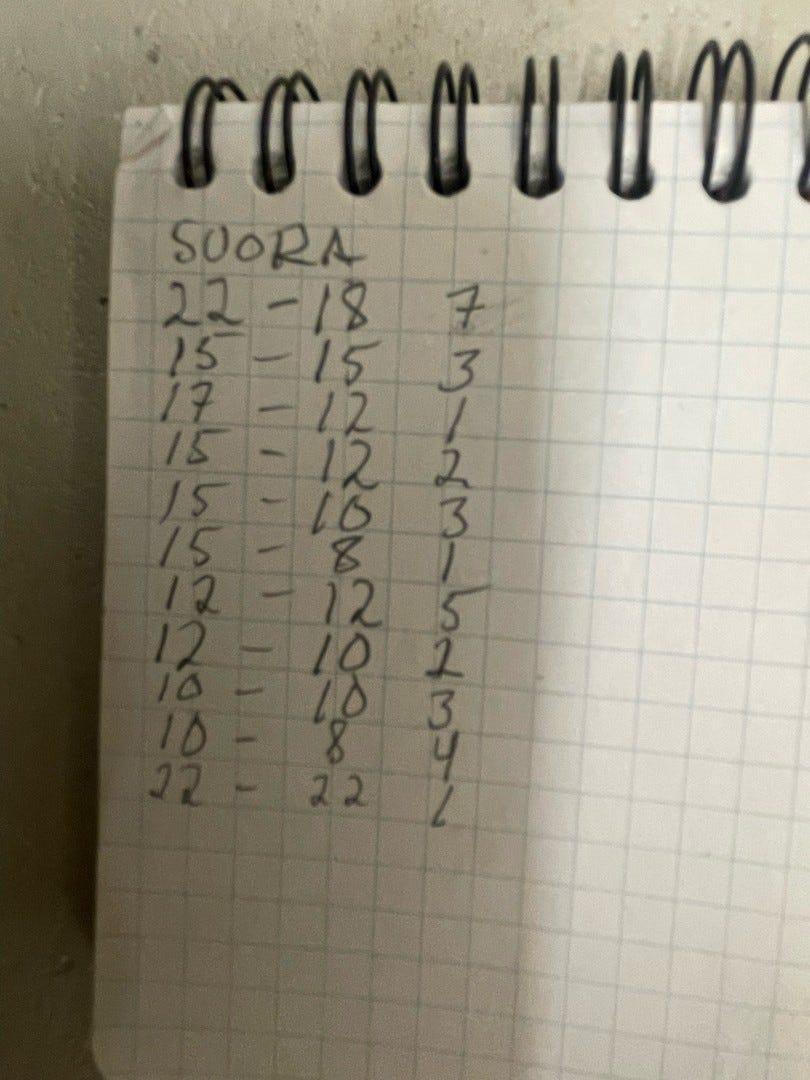 SUORA
22 - 18 7
15 - 15 3
17 - 12 1
15 - 12 2
15 - 10 3
15 - 8 1
12 - 12 5
12 - 10 2
10 - 10 3
10 - 8 4
22 - 22 1